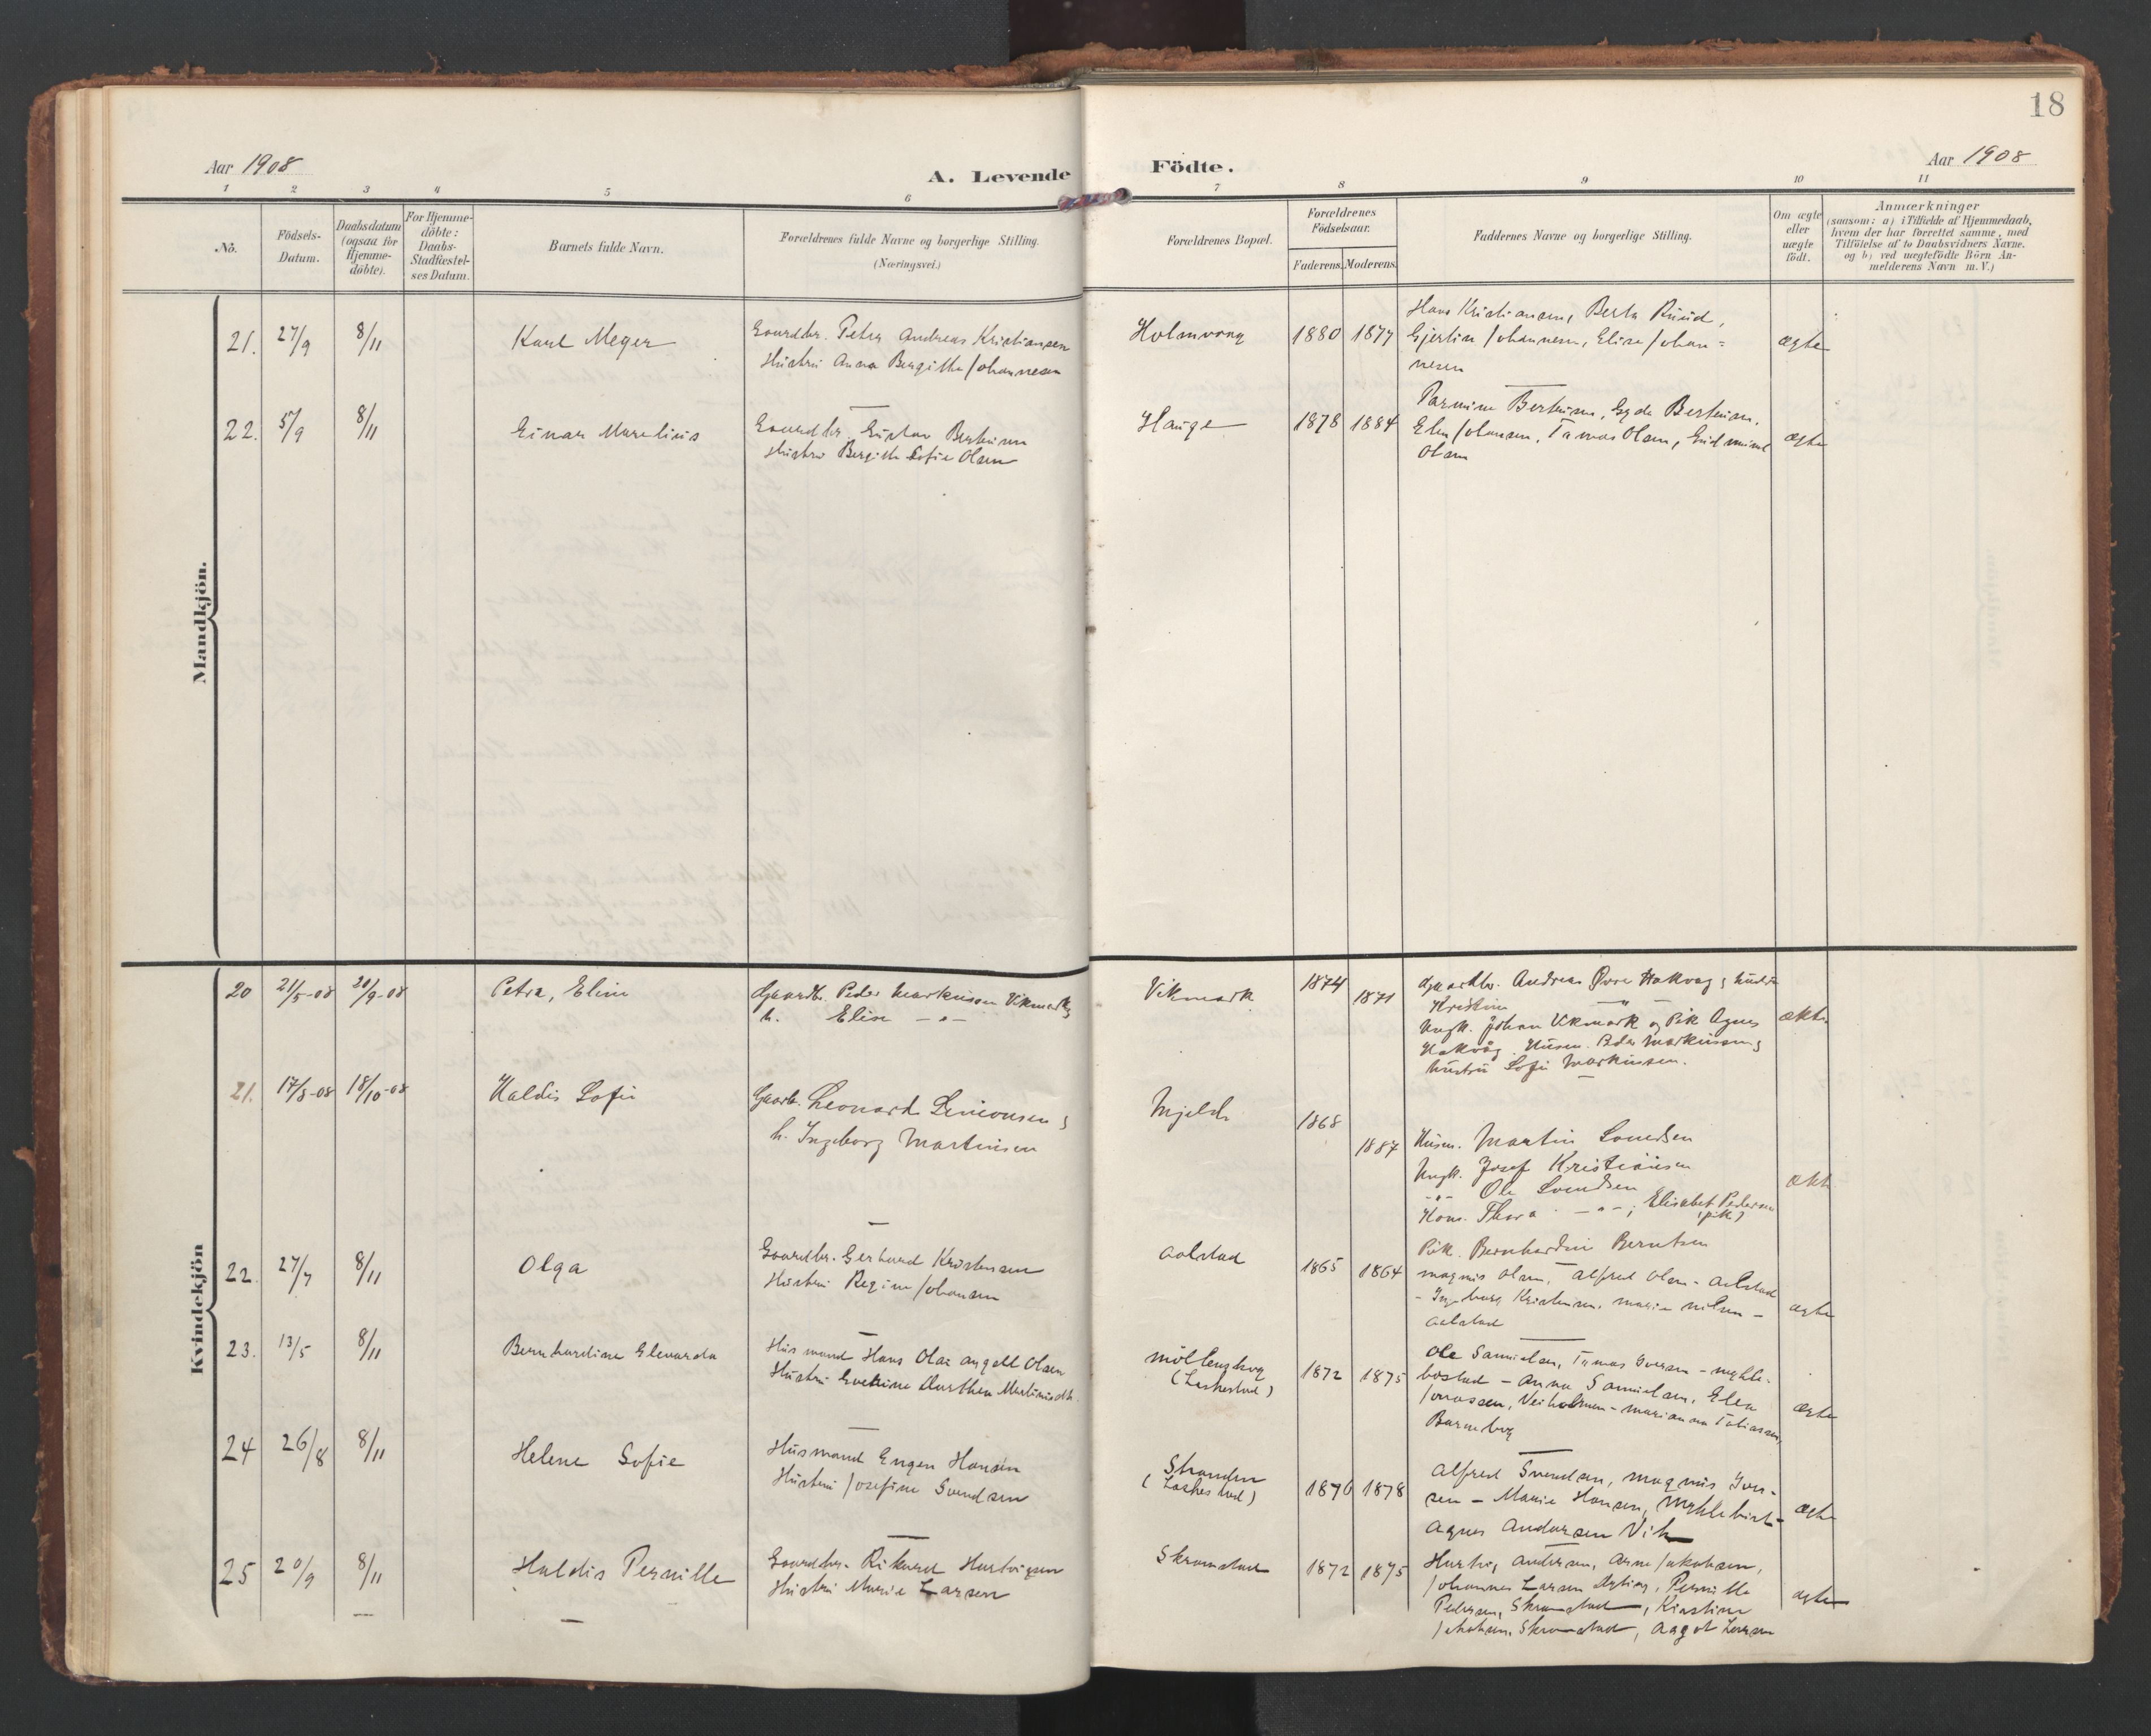 18
Aar 1908
A. Levende Födte.
Aar 1908
1 2 3 4 5 6 7 8 9 10 11
Nô.
Födsels-
Datum.
Daabsdatum
(ogsaa for
Hjemme-
döbte).
For Hjemme-
döbte:
Daabs-
Stadfæstel-
ses Datum.
Barnets fulde Navn.
Forældrenes fulde Navne og borgerlige Stilling.
(Næringsvei.)
Forældrenes Bopæl.
Forældrenes
Födselsaar.
Faderens. Moderens.
Faddernes Navne og borgerlige Stilling.
Om ægte
eller
uægte
födt.
Anmærkninger
(saasom: a) i Tilfælde af Hjemmedaab,
hvem der har forrettet samme, med
Tilföielse af to Daabsvidners Navne.
og b) ved uægtefödte Börn An-
melderens Navn m. V.)
Mandkjön.
21. 27/9 8/11 Karl Meyer
Gaardbr. Peter Andreas Kristiansen
Hustru Anna Bergitte Johannesen
Holmvaag 1880 1877
Hans Kristiansen, Berta Ruud,
Gjertine Johannesen, Elise Johan=
nesen
ægte
22. 5/9 8/11 Einar Marelius
Gaardbr. Gustav Berteusen
Hustru Bergitte Sofie Olsen
Hauge 1878 1884
Berteusen, Berteusen,
Elen Johansen, Tomas Olsen, Gudmund
Olsen
ægte
Kvindekjön
20 21/5-08 20/9-08 Petra, Eline
Gaardbr. Peder Markussen Vikmark &
h. Elise -"-
Vikmark 1874 1871
Gaardbr. Andreas Øvre Hakvag & hustru
Kristine -"-
Ungk. Johan Vikmark og Pik Agnes
Hakvåg. Husm. Peder Markussen &
hustru Sofie Markussen.
ækte
21. 17/8-08 18/10-08 Haldis Sofie
Gaardb. Leonard Simonsen &
h. Ingeborg Martinsen
Mjelde 1868 1887
Husm. Martin Svendsen
Ungk. Josef Kristiansen
-"- Ole Svendsen
Kone. Thora -"-; Elisabet Pedersen
(pik)
Pik. Bernhardine Berntsen
ækte
22. 27/7 8/11 Olga
Gaardbr. Gerhard Kristensen
Hustru Regine Johansen
Aalstad 1865 1864
Magnus Olsen, Alfred Olsen - Aalstad
- Ingeborg Kristensen, Marie Nilsen -
Aalstad
ægte
23. 13/5 8/11 Bernhardine Elevarda
Husmand Hans Olai Angell Olsen
Hustru Dorthea
(Laskestad) 1872 1875
Ole Samuelsen, Tomas Iversen - Mykle-
bostad - Anna Samuelsen, Elen
Jonassen, Veiholmen - Marianna Tobiassen,
ægte
24 26/8 8/11 Helene Sofie
Husmand Eugen Hansen
Hustru Josefine Svendsen
Stranden
(Laskestad) 1876 1878
Alfred Svendsen, Magnus Iver-
sen - Marie Hansen, Myklebost-
Agnes Andersen Vik
ægte
25 20/9 8/11 Haldis Pernille
Gaardbr. Rikard Hartvigsen
Hustru Marie Larsen
Skramstad 1872 1875
Hartvig Andersen, Arne Jakobsen,
Johannes Larsen, Pernille
Pedersen, Skramstad, Kirstine
Jakobsen, Skramstad, Aagot Larsen
ægte